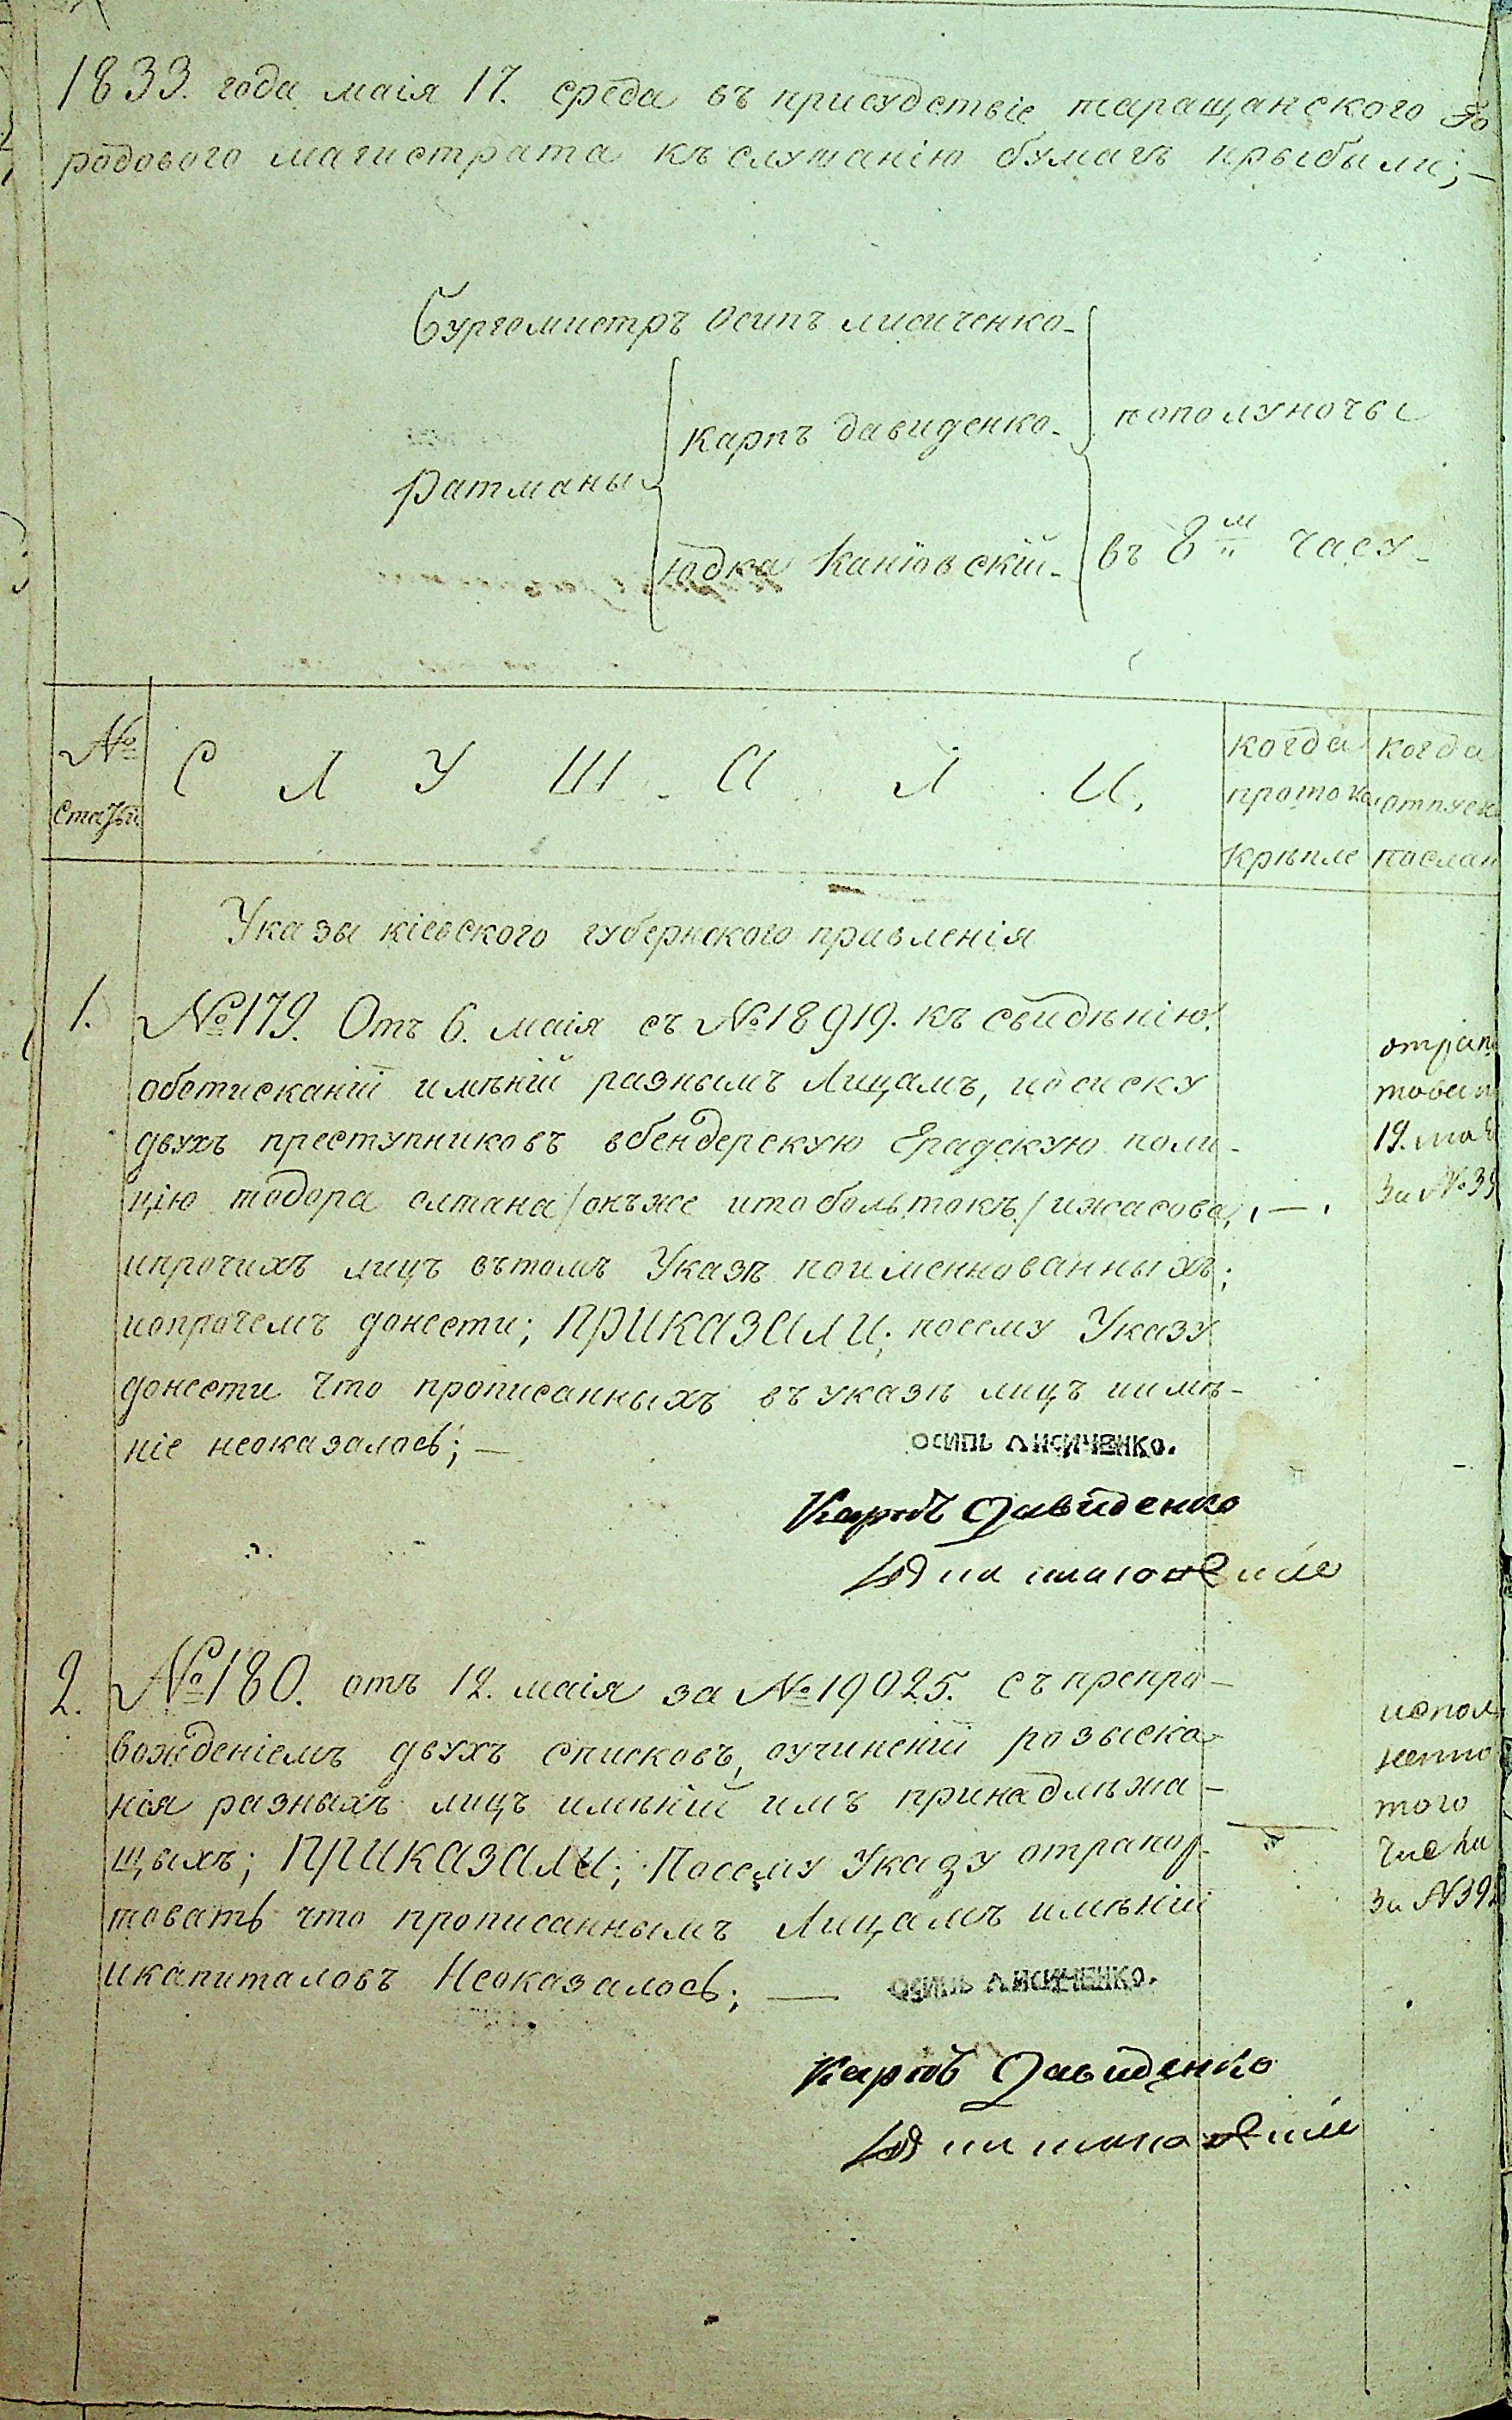 1833. года маія 17. среда въ присудствіе таращанского Го
родового магистрата къ слушанію бумагъ прыбыли;—
Бургомистръ Осипъ лисиченко-
Ратманы
Карпъ давиденко-
Юдка Каніовскій-
пополуночы
въ 8м часу-
№ статьи
С Л У Ш А Л И.
когда прото ко крѣпле
когда отпуск послан
Указы кіевского губернского правленія
1. №179. Отъ 6. маія съ №18919. къ свидѣнію.
оботисканій имѣній разнымъ Лицамъ, иосиску
двухъ преступниковъ вбендерскую Градскую поли-
цію тодора олтана/онъже итобольтокъ/ижасова,
ипрочихъ лицъ вътомъ Указѣ поименнованныхъ;
иопрочемъ донести; ПРИКАЗАЛИ; посему Указу
донести что прописанныхъ въ указѣ лицъ иимѣ-
ніе неоказалось;—
отрапо
тован
19. мая
за №39
осипъ Лисиченко.
Карпъ Давиденко
2. №180. отъ 12. маія за №19025. съ препро-
вожденіемъ двухъ списковъ, оучиненій розыска-
нія разныхъ лицъ имѣній имъ принадлѣжа-
щыхъ; ПРИКАЗАЛИ; Посему Указу отрапор-
товать что прописаннымъ Лицамъ имѣній
икапиталовъ Неоказалось;—
испол
ненно
того
числа
за №392
осипъ Лисиченко.
Карпъ Давиденко